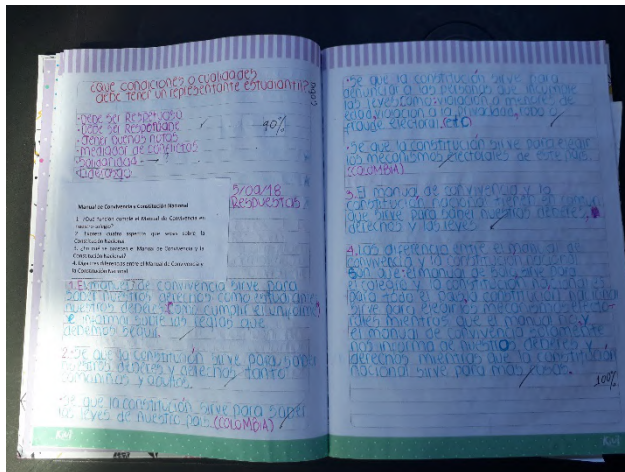 ¿Que condiciones o cualidades
debe tener un representante estudiantil?
-Debe ser Respetuoso
-Debe ser
-tener buenas notas
-mediador de conflictos
-Solidaridad
-Liderazgo
90%
Manual de Convivencia y Constitución Nacional
1. ¿Qué función cumple el Manual de Convivencia en
nuestro colegio?
2. Exprese cuatro aspectos que sepas sobre la
Constitución Nacional
3. ¿En qué se parecen el Manual de Convivencia y la
Constitución Nacional?
4. diferencias entre el Manual de Convivencia y
la Constitución Nacional
Respuestas
1. El manual de convivencia sirve para
saber nuestros derechos como estudiantes
nuestros deberes como cumplir el uniforme
e informa sobre las reglas que
debemos seguir.
2. Se que la constitución sirve para saber
nuestros deberes y derechos tanto
como niños y adultos.
•Se que la constitución sirve para saber
las leyes de nuestro país (COLOMBIA)
•Se que la constitución sirve para
denunciar a las personas que incumplen
las leyes como: violación a menores de
edad, violación a la privacidad, robo,
fraude electoral, etc
•Se que la constitución sirve para elegir
los mecanismos electorales de este país.
(COLOMBIA)
3. El manual de convivencia y la
constitución nacional tienen en común
que sirve para saber nuestros deberes,
derechos y las leyes.
4. Las diferencia entre el manual de
convivencia y la constitución
son que: el manual de es solo para
el colegio y la constitución nacional es
para todo el país, la constitución nacional
sirve para elegir los mecanismos
rales mientras que el manual no, y
el manual de convivencia solamente
nos informa de nuestros deberes y
derechos mientras que la constitución
nacional sirve para mas cosas.
100%